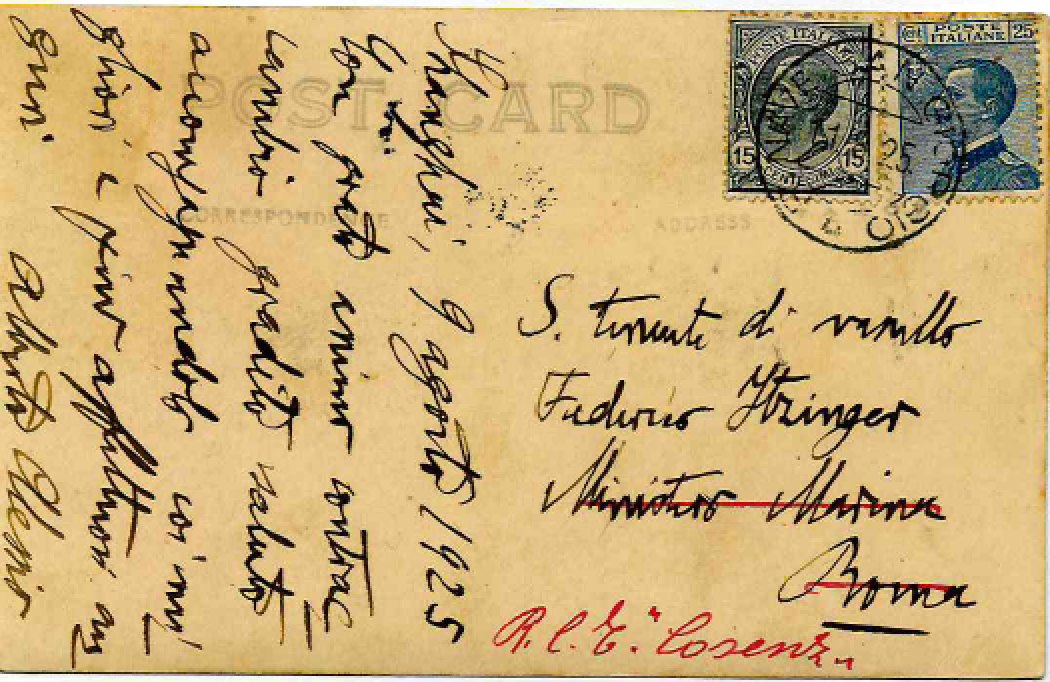 POST CARD
CORRESPONDENCE
ADDRESS
POSTE ITALIANE
15 15
CENTESIMI
POSTE
ITALIANE
25
Shanghai, 9 agosto 1925
Con grato animo contrac
cambio gradito saluto
accompagnandolo coi mi
gliori e più affettuosi au
guri
Alberto
S. tenente di vascello
Federico
Ministero Marina
Roma
R. C. E. "Cosenz"